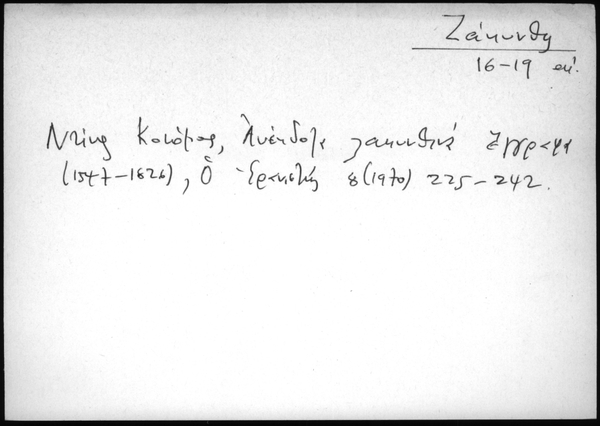 Ζάκυνθος
16–19 αἰ.
Ντίνος Κονόμος, Ἀνέκδοτα ζακυνθινά ἔγγραφα
(1547–1826), Ὁ Ἐρανιστής 8 (1970) 225–242.